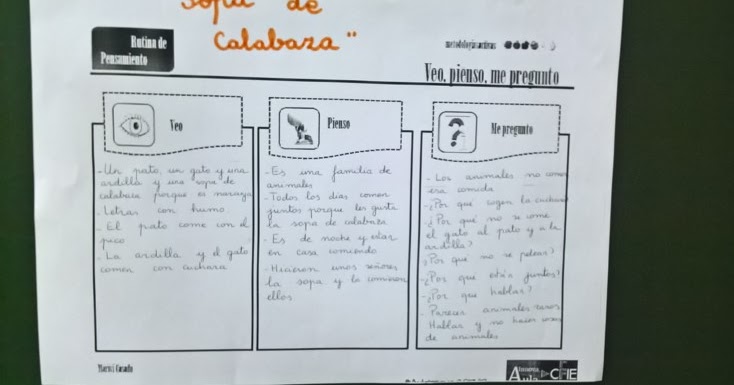 Sopa de
Calabaza"
Rutina de
Pensamiento
metodologías activas
Veo, pienso, me pregunto
Veo
- Un pato, un gato y una
ardilla y una sopa de
calabaza porque es naranja
- Letras con humo
- El pato come con el
pico
- La ardilla y el gato
comen con cuchara
Pienso
- Es una familia de
animales
- Todos los días comen
juntos porque les gusta
la sopa de calabaza
- Es de noche y están
en casa comiendo
- Hicieron unos señores
la sopa y la comieron
ellos
Me pregunto
- Los animales no comen
esa comida
- ¿Por qué cogen la cuchara
- ¿Por qué no se come
el gato al pato y a la
ardilla?
¿Por qué no se pelean?
- ¿Por qué están juntos?
- ¿Por qué hablan?
- Parecen animales raros
Hablan y no hacen cosas
de animales
Marni Casado
Aula CFIE